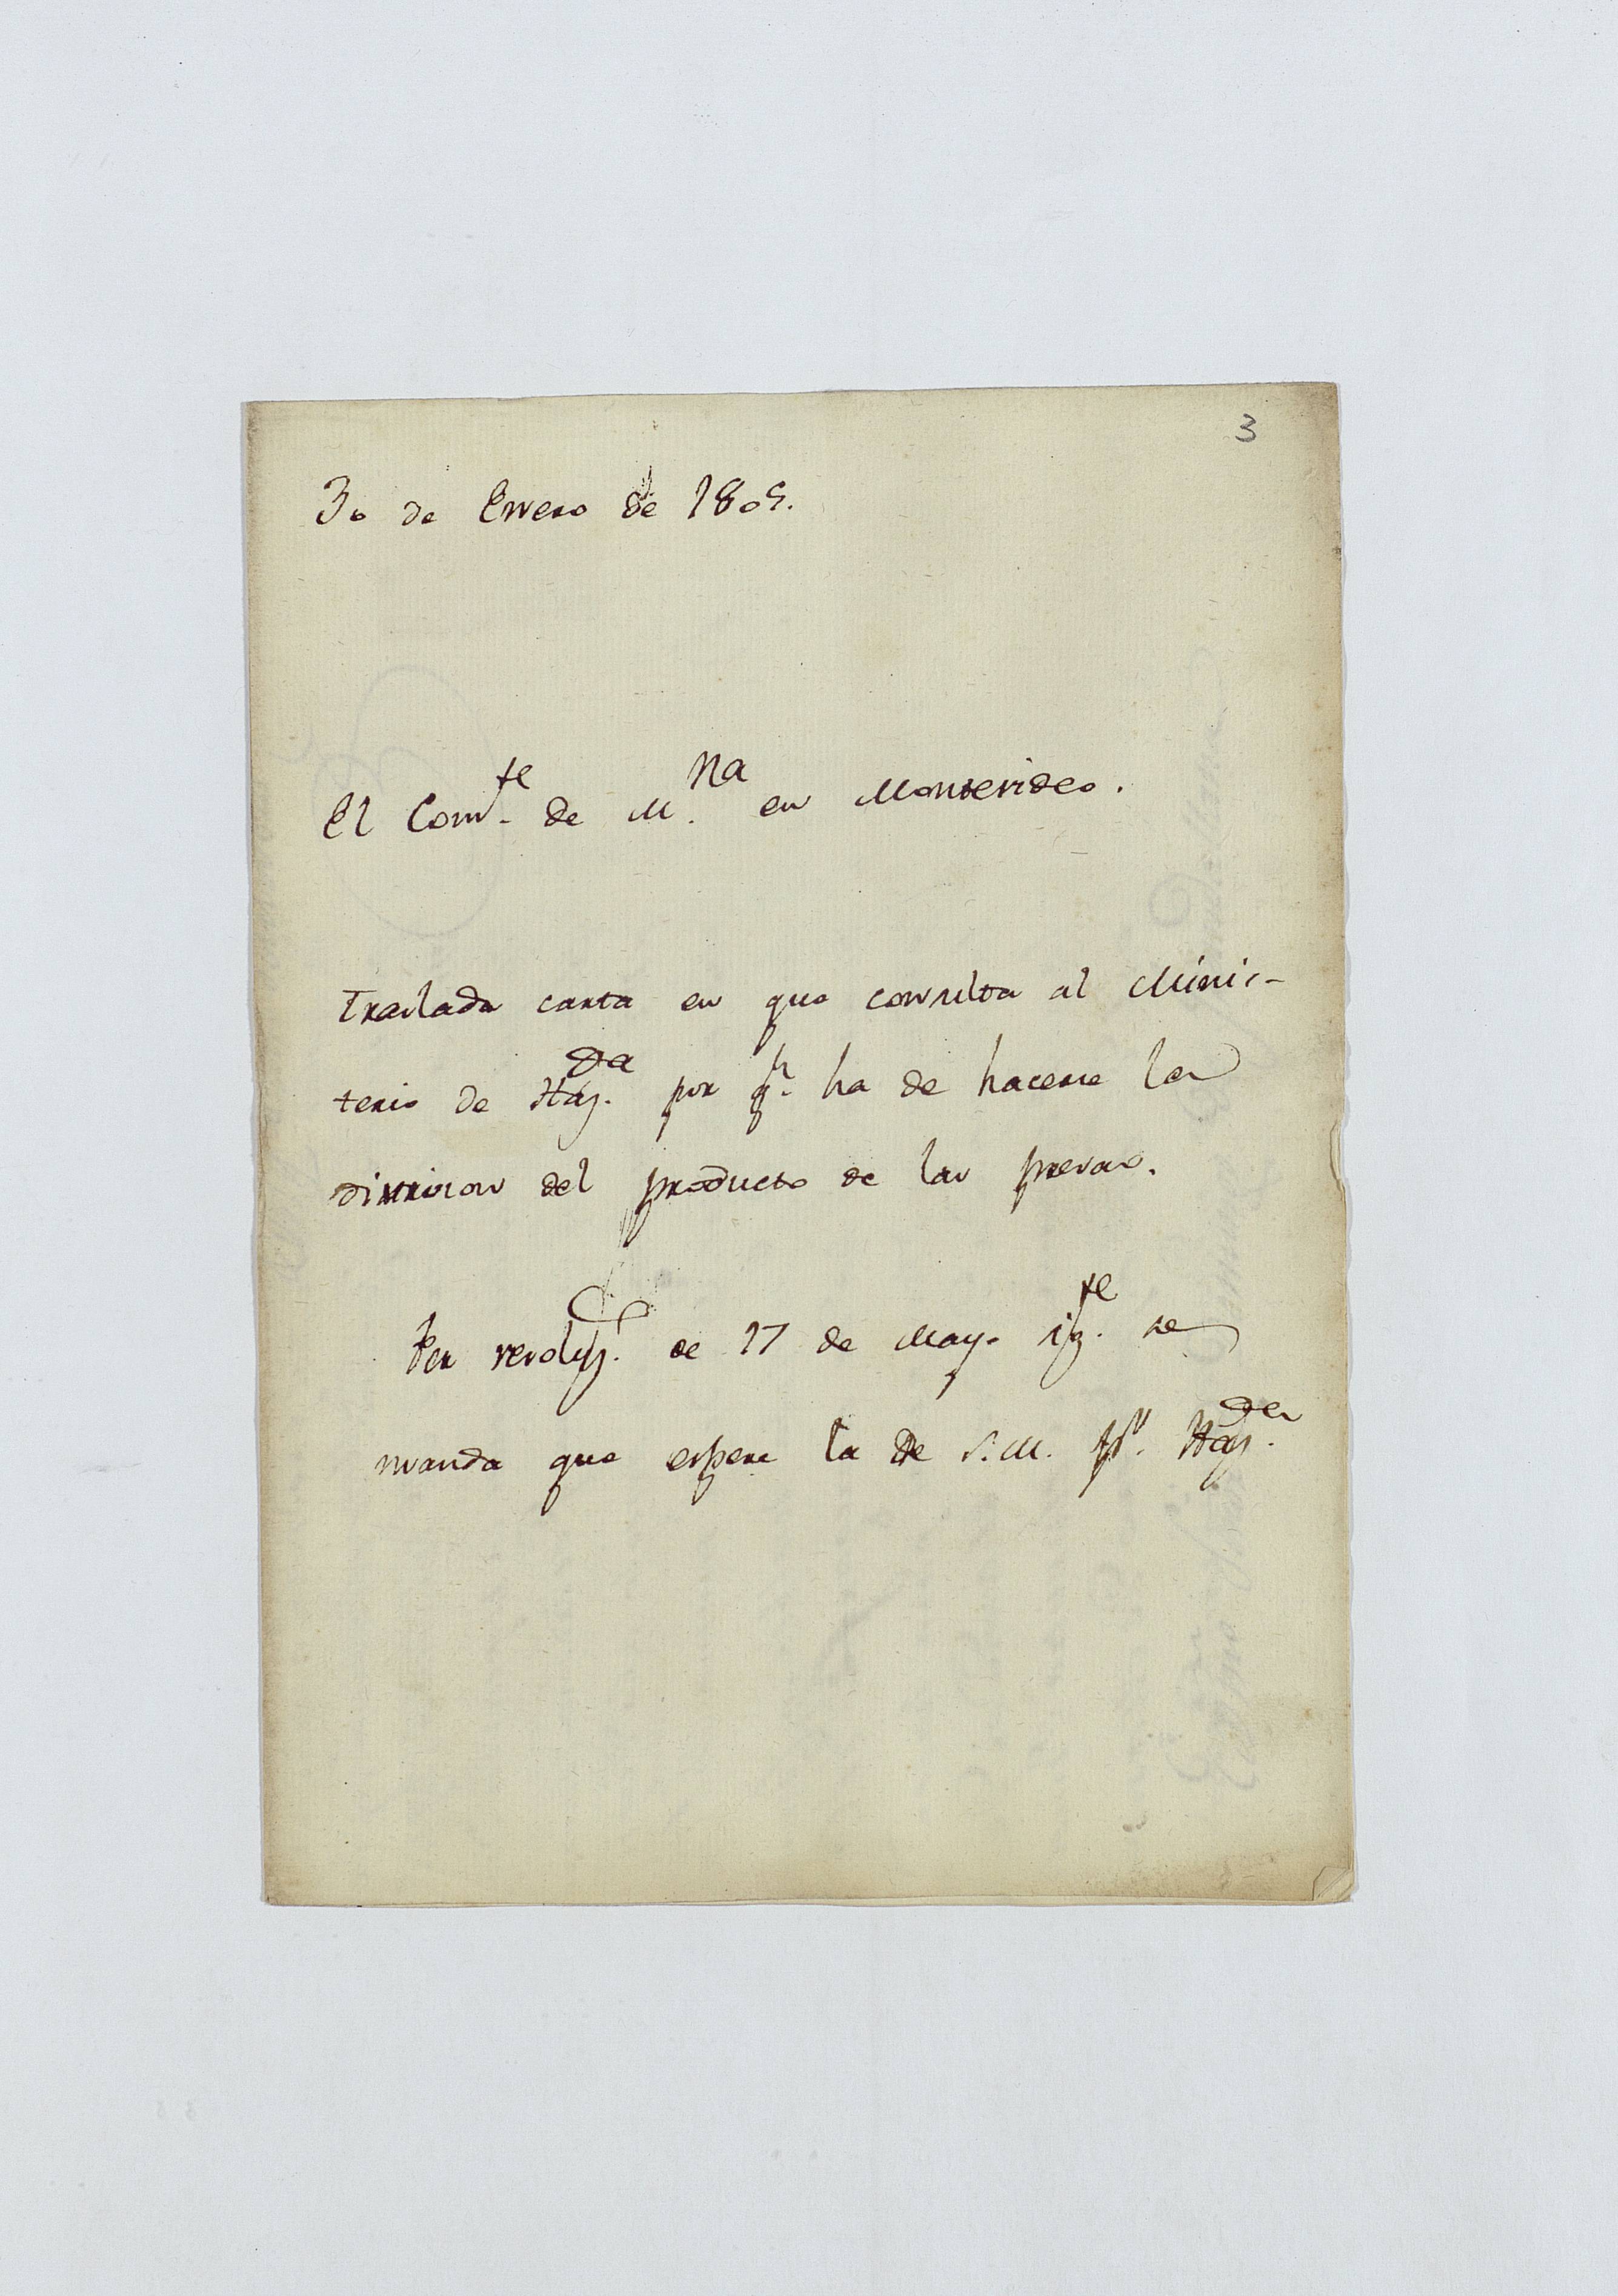 3
30 de Enero de 1805.
El Com.te de M.na en Montevideo.
Traslada carta en que consulta al Minis-
terio de Haz.da por qn. ha de hacerse la
division del producto de las presas.
Por resoluz.n de 17 de Mayo sig.te se
manda que espere la de S.M. pr. Haz.da